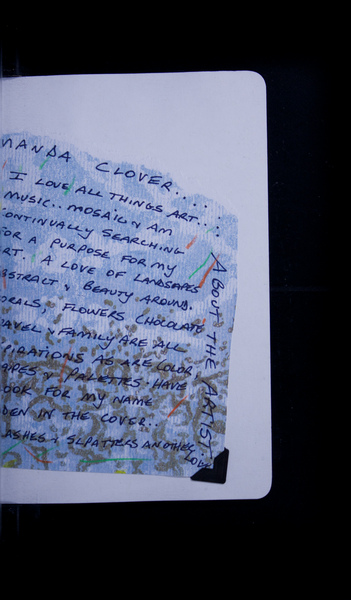 MANDA CLOVER.....
I LOVE ALL THINGS ART..
MUSIC.. MOSAIC & AM
ONTINUALLY SEARCHING
OR A PURPOSE FOR MY
RT. A LOVE OF LANDSAPES
BSTRACT & BEAUTY AROUND.
ORALS, FLOWERS CHOCOLATE
AVEL & FAMILY ARE ALL
PIRATIONS AS ARE COLOR,
APES & PALETTES. HAVE
OOK FOR MY NAME
DEN IN THE COVER..
ASHES & SLPATTERS ANOTHER
LOVE
ABOUT THE ARTIST.